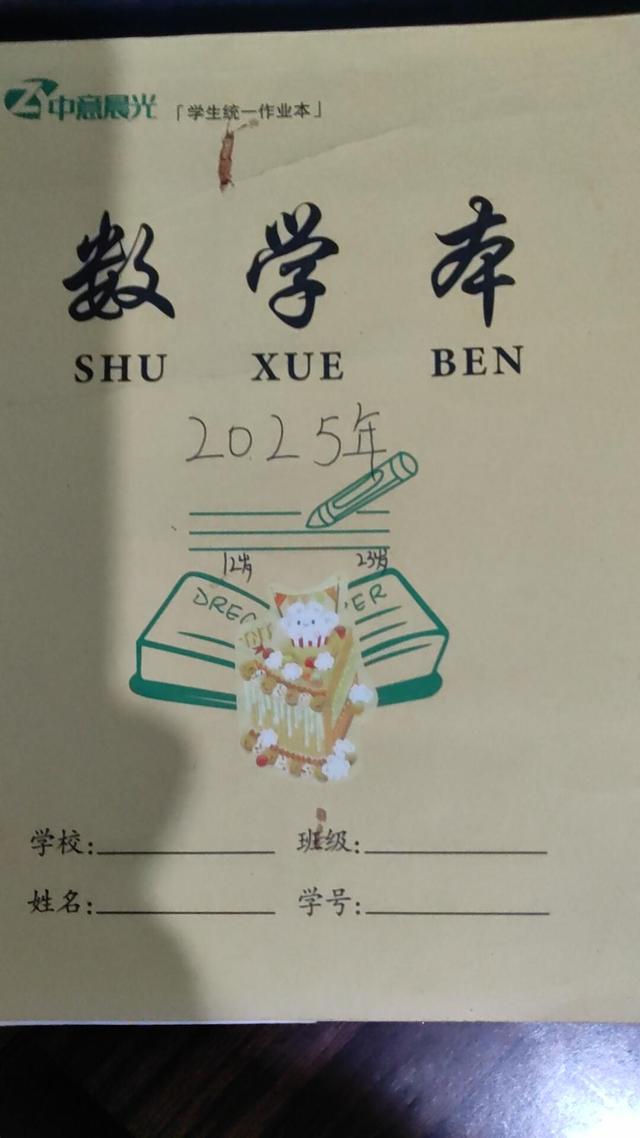 中意晨光 「学生统一作业本」
数 学 本
SHU XUE BEN
2025年
12岁 23岁
学校: 班级:
姓名: 学号: